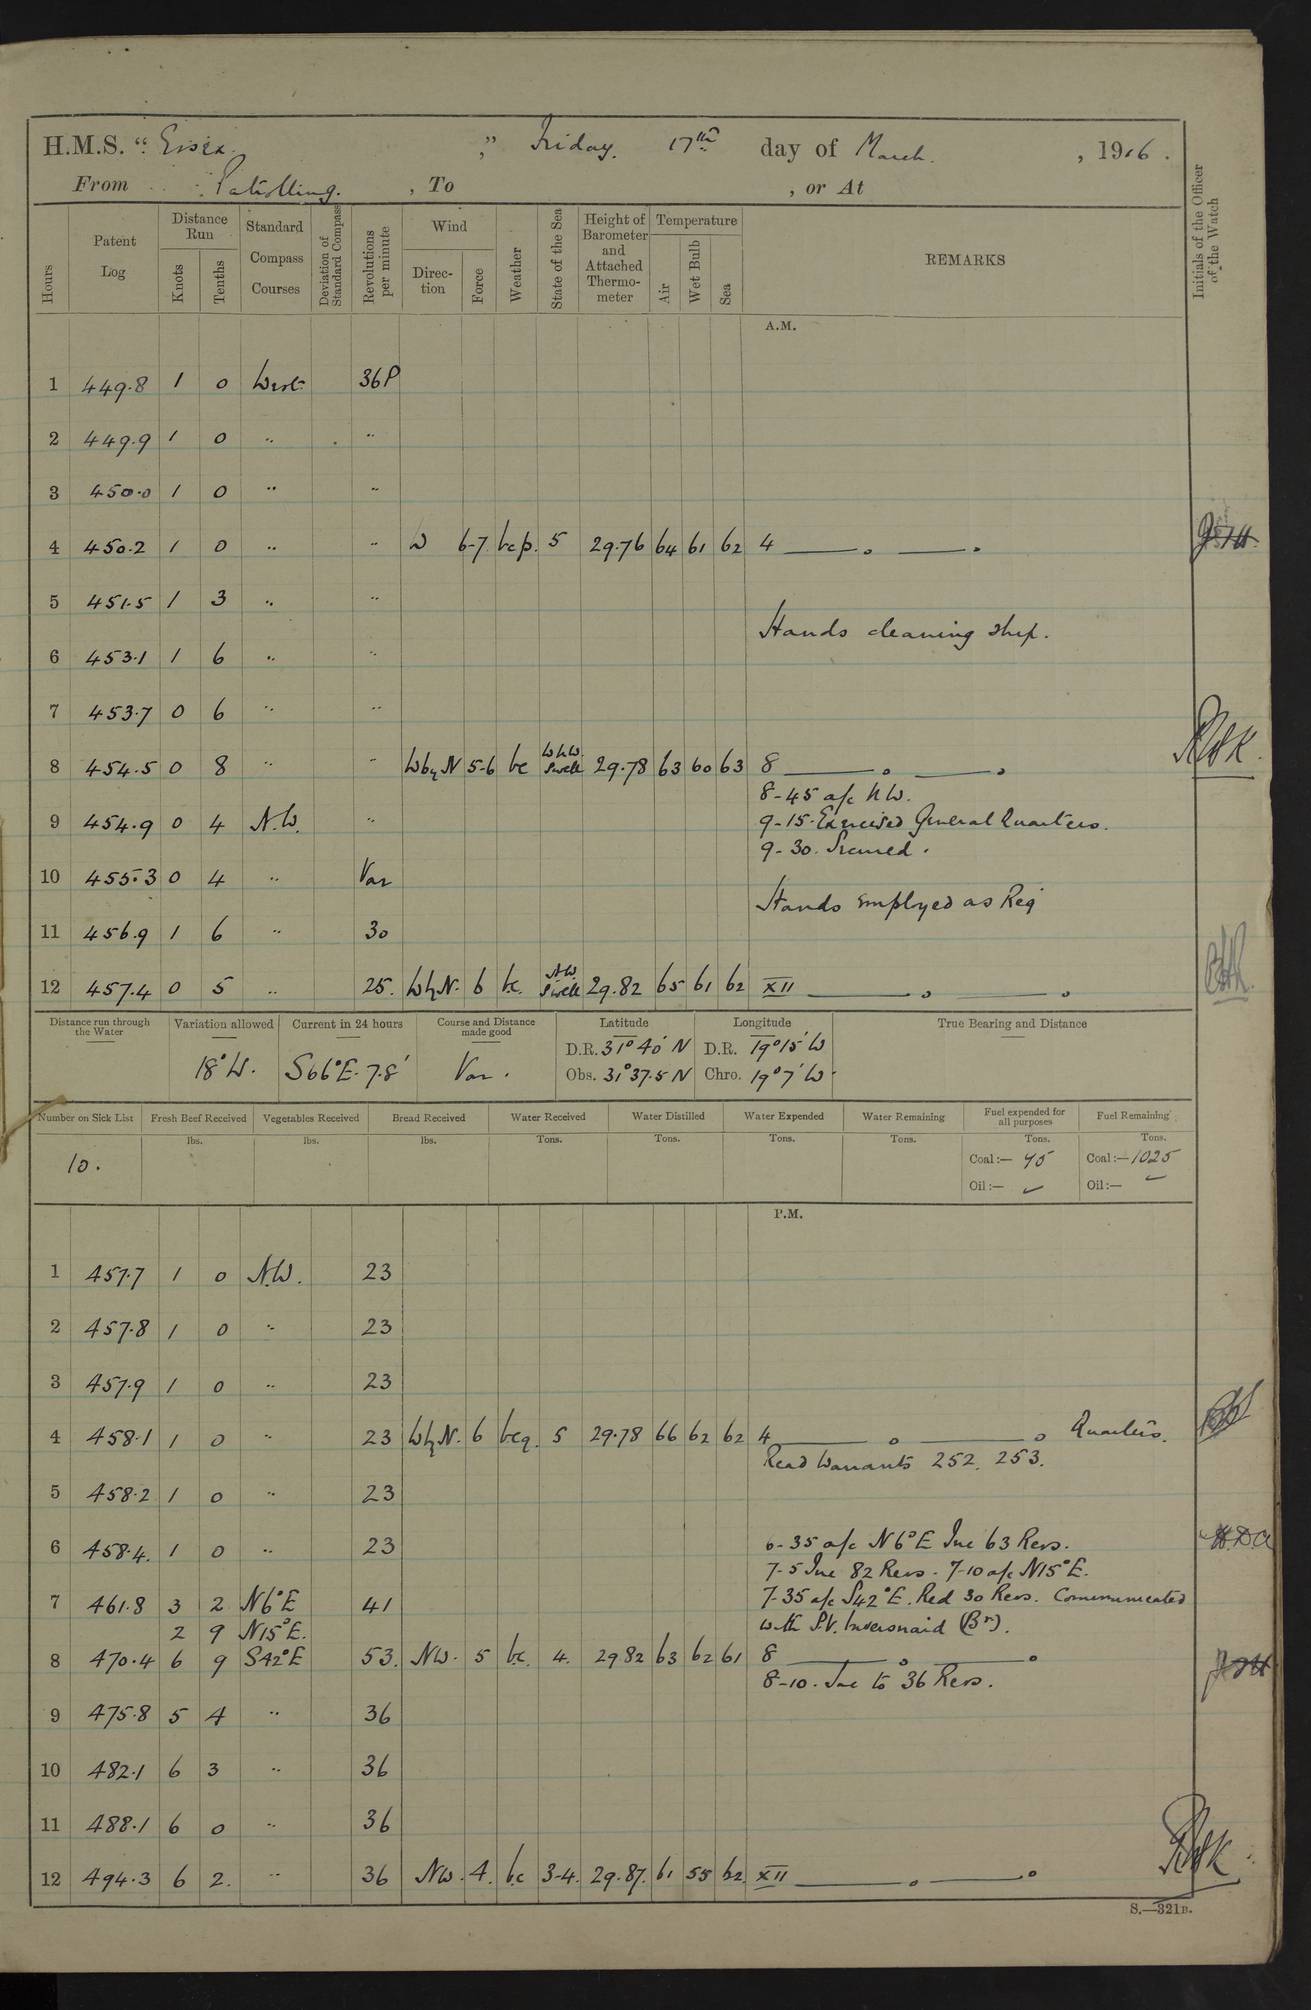 H.M.S. "Essex." Friday. 17th day of March, 1916.
From Patrolling. , To , or At
Hours
Patent Log
Distance Run
Knots
Tenths
Standard Compass Courses
Deviation of Standard Compass
Revolutions per minute
Wind
Direction
Force
Weather
State of the Sea
Height of Barometer and Attached Thermometer
Temperature
Air
Wet Bulb
Sea
REMARKS
Initials of the Officer of the Watch
A.M.
1 449.8 1 0 West 36P
2 449.9 1 0 " "
3 450.0 1 0 " "
4 450.2 1 0 " " W 6-7 bcp. 5 29.76 64 61 62 4
5 451.5 1 3 " "
Hands cleaning ship.
6 453.1 1 6 " "
7 453.7 0 6 " "
8 454.5 0 8 " " WbyN 5-6 bc WNW. Swell 29.78 63 60 63 8
8-45 a/c NW.
9 454.9 0 4 N.W. " 9-15. Exercised General Quarters.
9-30. Secured.
10 455.3 0 4 " Var
Hands employed as Req
11 456.9 1 6 " 30
12 457.4 0 5 " 25. WbyN. 6 bc. NW. Swell 29.82 65 61 62 XII
Distance run through the Water
Variation allowed 18° W.
Current in 24 hours S66°E. 7.8'
Course and Distance made good Var.
Latitude
D.R. 31° 40' N
Obs. 31° 37.5 N
Longitude
D.R. 19° 15' W
Chro. 19° 7' W
True Bearing and Distance
Number on Sick List 10.
Fresh Beef Received lbs.
Vegetables Received lbs.
Bread Received lbs.
Water Received Tons.
Water Distilled Tons.
Water Expended Tons.
Water Remaining Tons.
Fuel expended for all purposes Tons.
Coal:— 45
Oil:— ✓
Fuel Remaining Tons.
Coal:— 1025
Oil:— ✓
P.M.
1 457.7 1 0 N.W. 23
2 457.8 1 0 " 23
3 457.9 1 0 " 23
4 458.1 1 0 " 23 WbyN. 6 bcq. 5 29.78 66 62 62 4 Quarters.
Read Warrants 252. 253.
5 458.2 1 0 " 23
6 458.4. 1 0 " 23 6-35 a/c N6°E Inc 63 Revs.
7-5 Inc 82 Revs. 7-10 a/c N15°E.
7 461.8 3 2 N6°E 41 7-35 a/c S42°E. Red 30 Revs. Communicated
2 9 N15°E. with S.V. Inversnaid (Br).
8 470.4 6 9 S42°E 53. NW. 5 bc. 4. 29 82 63 62 61 8
8-10. Inc to 36 Revs.
9 475.8 5 4 " 36
10 482.1 6 3 " 36
11 488.1 6 0 " 36
12 494.3 6 2. " 36 NW. 4. bc 3-4. 29.87. 61 55 62 XII
S.—321B.